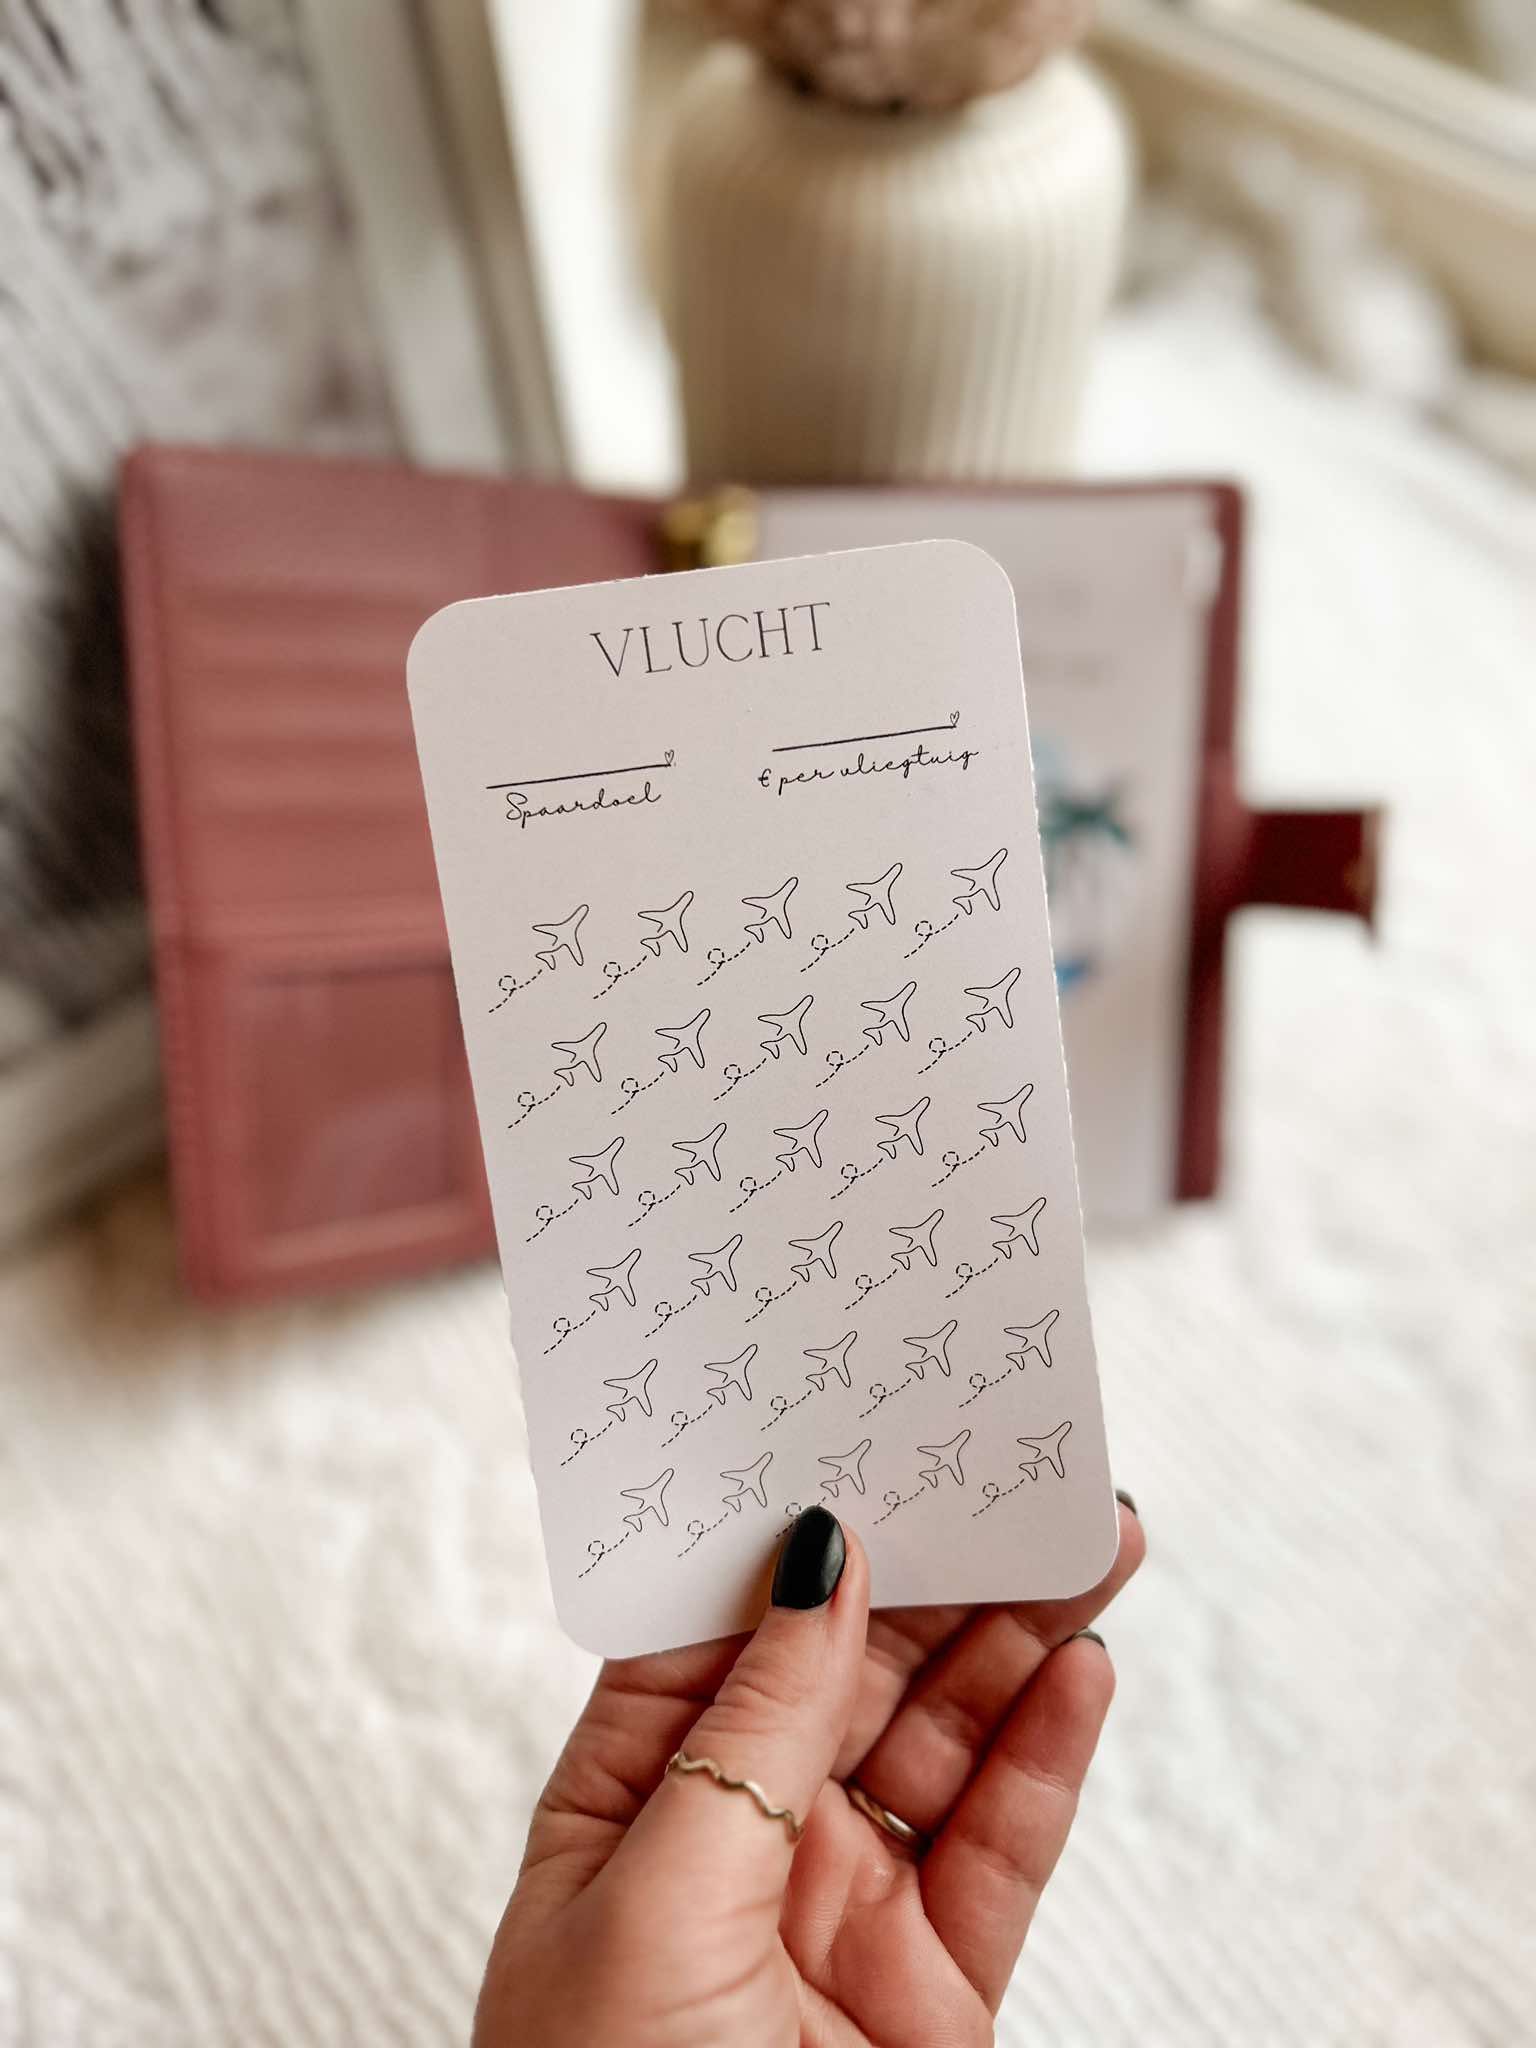 VLUCHT
Spaardoel
€ per vliegtuig